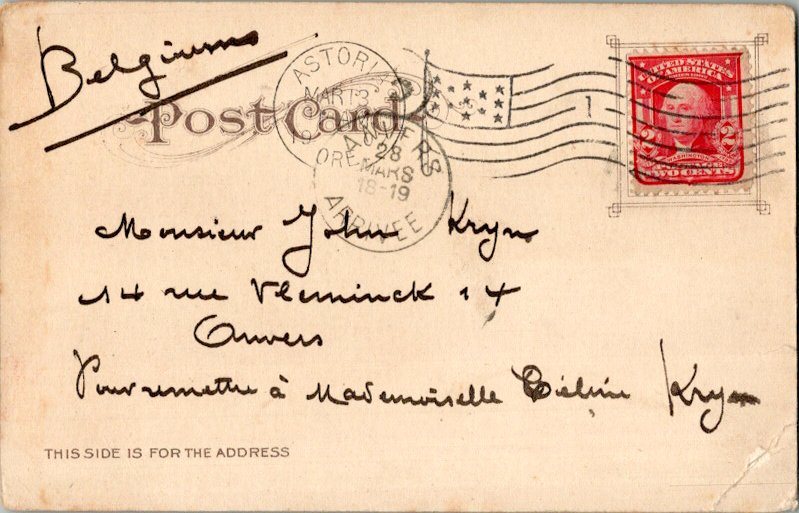 Belgium
Post Card
ASTORIA
MAR 13
ORE.
ANVERS
28
MARS
18-19
ARRIVEE
1
UNITED STATES
OF AMERICA
2 2
WASHINGTON
TWO CENTS
Monsieur John Kryn
14 rue Vleminck 14
Anvers
Pour remettre à Mademoiselle Céline Kryn
THIS SIDE IS FOR THE ADDRESS